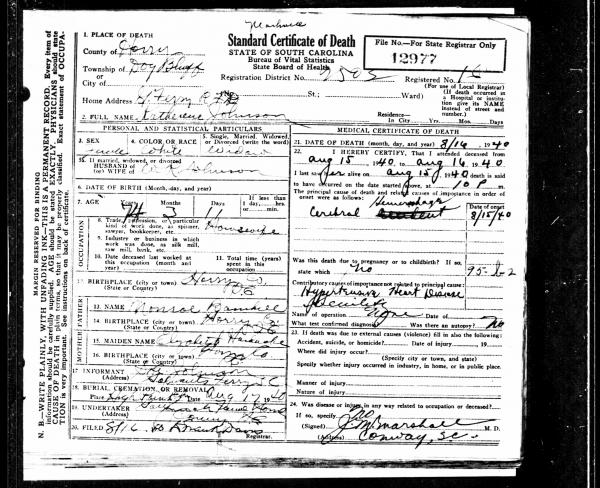 Standard Certificate of Death
STATE OF SOUTH CAROLINA
Bureau of Vital Statistics
State Board of Health
File No.—For State Registrar Only
12977
1. PLACE OF DEATH
County of Horry
Township of Dog Bluff
or
City of
Registration District No. 2502 Registered No. 16
(For use of Local Registrar)
St.; Ward)
(If death occurred in a Hospital or institution give its NAME instead of street and number.)
Home Address
Residence—In City Yrs. Mos. Days
2. FULL NAME Katherine Johnson
PERSONAL AND STATISTICAL PARTICULARS
3. SEX
4. COLOR OR RACE
5. Single, Married, Widowed, or Divorced (write the word)
Female White Widow
5a. If married, widowed, or divorced
HUSBAND of
(or) WIFE of Johnson
6. DATE OF BIRTH (Month, day, and year)
7. AGE 74 3 11
If less than 1 day, hrs. or min.
OCCUPATION
8. Trade, profession, or particular kind of work done, as spinner, sawyer, bookkeeper, etc. Housewife
9. Industry or business in which work was done, as silk mill, saw mill, bank, etc.
10. Date deceased last worked at this occupation (month and year)
11. Total time (years) spent in this occupation
12. BIRTHPLACE (city or town) Horry
(State or Country) SC
FATHER
13. NAME Monroe
14. BIRTHPLACE (city or town) Horry
(State or Country)
MOTHER
15. MAIDEN NAME
16. BIRTHPLACE (city or town)
(State or Country)
17. INFORMANT
(Address) Galivants Ferry S.C
18. BURIAL, CREMATION, OR REMOVAL
Place Date Aug 17 1940
19. UNDERTAKER
(Address)
20. FILED 8/16 40 Davis
Registrar.
MEDICAL CERTIFICATE OF DEATH
21. DATE OF DEATH (month, day, and year) 8/16 1940
22. I HEREBY CERTIFY, That I attended deceased from
Aug 15 1940 to Aug 16 1940
I last saw her alive on Aug 15 1940 death is said
to have occurred on the date stated above, at 10 P m.
The principal cause of death and related causes of importance in order of onset were as follows:
Date of onset
Hemorrhage
Cerebral 8/15/40
Was this death due to pregnancy or to childbirth? If so,
state which No
95-b-2
Contributory causes of importance not related to principal cause:
Hypertensive Heart Disease
Senility
Name of operation None Date of
What test confirmed diagnosis? Was there an autopsy? No
23. If death was due to external causes (violence) fill in also the following:
Accident, suicide, or homicide? Date of injury 19
Where did injury occur?
(Specify city or town, county, and state)
Specify whether injury occurred in industry, in home, or in public place.
Manner of injury
Nature of injury
24. Was disease or injury in any way related to occupation of deceased?
If so, specify No
(Signed) J M Marshall M. D.
(Address) Conway, S.C.
MARGIN RESERVED FOR BINDING
N. B.—WRITE PLAINLY, WITH UNFADING INK—THIS IS A PERMANENT RECORD. Every item of
information should be carefully supplied. AGE should be stated EXACTLY. PHYSICIANS should state
CAUSE OF DEATH in plain terms, so that it may be properly classified. Exact statement of OCCUPA-
TION is very important. See instructions on back of certificate.